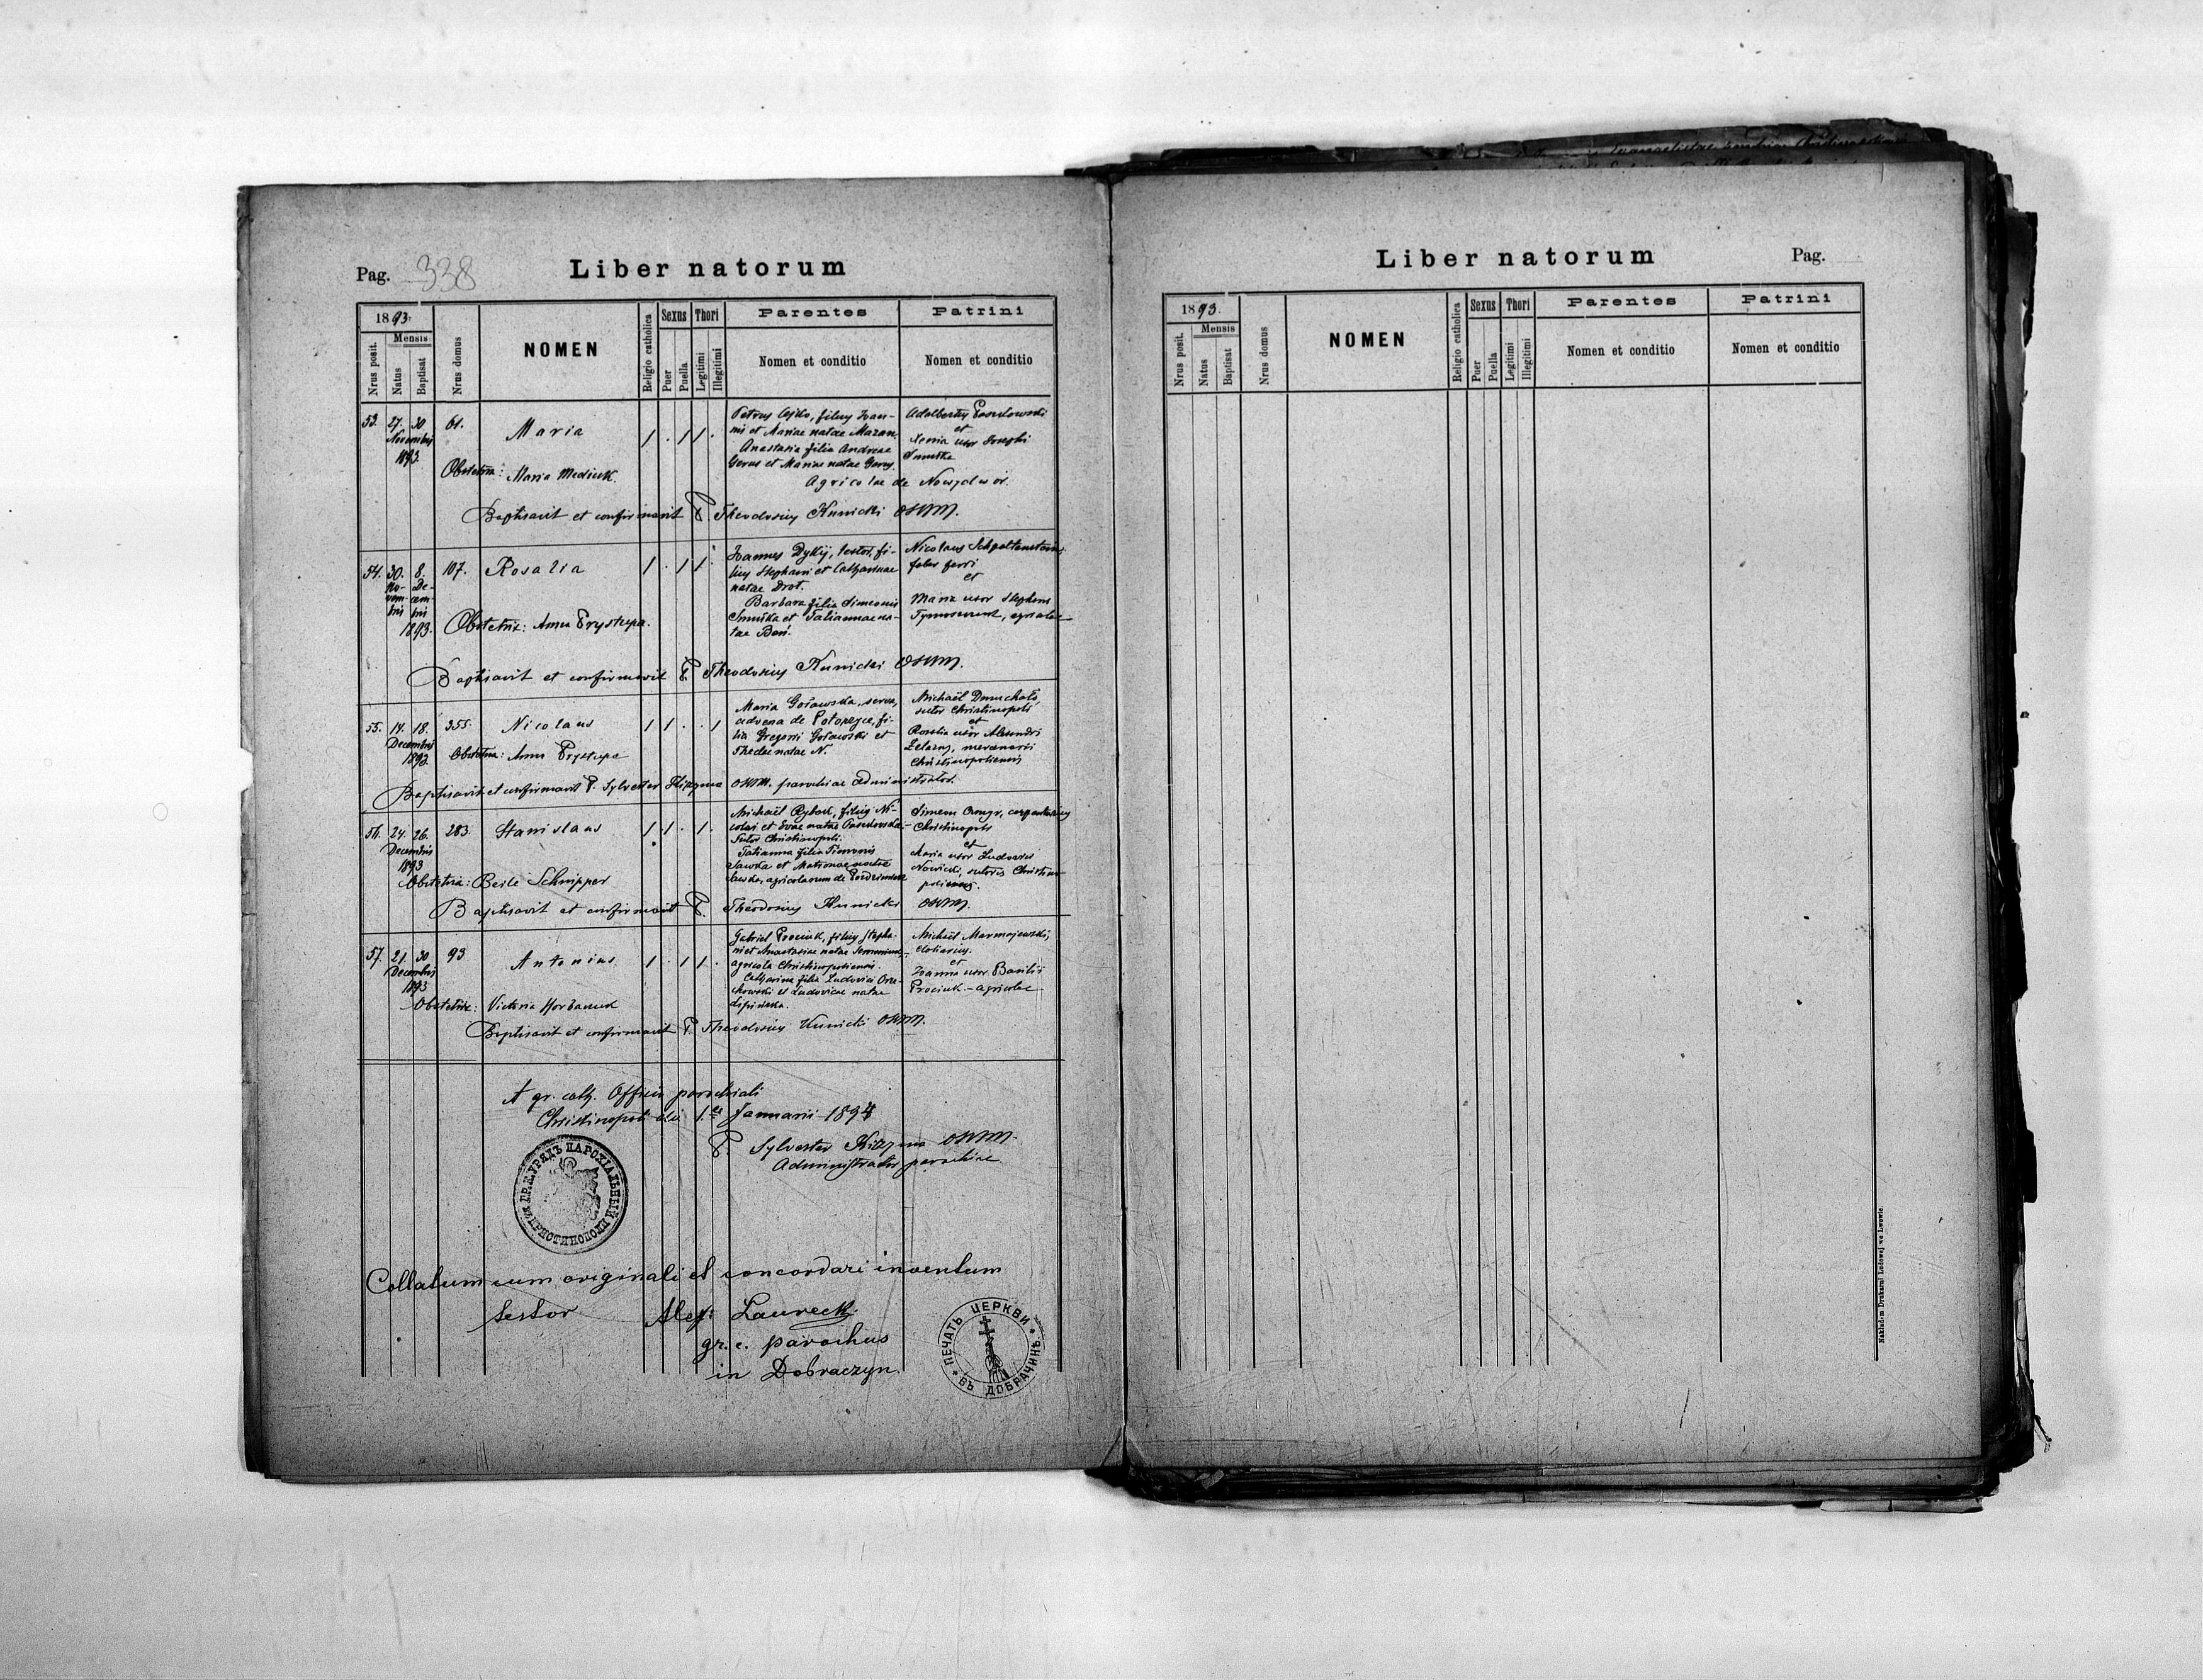 Pag. 338
Liber natorum
1893.
Nrus posit.
Mensis
Natus
Baptisat
Nrus domus
NOMEN
Religio catholica
Sexus
Puer
Puella
Thori
Legitimi
Illegitimi
Parentes
Nomen et conditio
Patrini
Nomen et conditio
53. 27. 30 Novembris 1893. 61. Maria 1 . 1 1 .
Obstetrix: Maria Mediuk.
Petrus, filius Joan-
nis et Mariae natae Mazan,
Anastasia filia Andreae
Gerus et Mariae natae Gerus.
Adalbertus
et
Xenia uxor Josephi
Agricolae de Nowydwór.
Baptisavit et confirmavit P. Theodosius Kunicki OSBM.
54. 30. No-vem-bris 8. De-cem-bris 1893. 107. Rosalia 1 . 1 1 .
Obstetrix: Anna Prystupa.
Joannes Dykij, textor, fi-
lius Stephani et Catharinae
natae Drot.
Barbara filia Simeonis
et Tatiannae na-
tae
Nicolaus
faber ferri
et
Maria uxor Stephani
agricolae
Baptisavit et confirmavit P. Theodosius Kunicki OSBM.
55. 14. 18. Decembris 1893. 355. Nicolaus 1 1 . . 1
Obstetrix: Anna Prystupa
Maria Gołowska, serva,
advena de fi-
lia Gregorii Gołowski et
Theclae natae N.
Michaël Dmuchało,
sutor Christinopoli
et
Rosalia uxor Alexandri
Żelazny, mercenarii
Christinopoliensis
Baptisavit et confirmavit P. Sylvester OSBM. parochiae administrator.
56. 24. 26. Decembris 1893 283. Stanislaus 1 1 . 1 .
Obstetrix: Beile Schnipper
Michaël Rybak, filius Ni-
colai et Evae natae
Sutor Christinopoli.
Tatianna filia Simeonis
Sawka et Matronae natae
Sawka, agricolarum de
Simeon
Christinopoli
et
Maria uxor Ludovici
Nowicki, sutoris Christino-
poliensis.
Baptisavit et confirmavit P. Theodosius Kunicki OSBM.
57. 21. 30 Decembris 1893 93 Antonius 1 . 1 1 .
Obstetrix: Victoria Horbaciuk
Gabriel Prociuk, filius Stepha-
ni et Anastasiae natae
agricola Christinopoliensis.
Catharina filia Ludovici Orze-
chowski et Ludovicae natae
Lipińska.
Michaël Marmojewski,
doliarius.
et
Joanna uxor Basilii
Prociuk - agricolae
Baptisavit et confirmavit P. Theodosius Kunicki OSBM.
A gr. cath. Officio parochiali
Christinopoli die 1. Januarii 1894
P. Sylvester OSBM.
Administrator parochiae
ГР.К. УРЯДЪ ПАРОХІАЛЬНЫЙ ХРИСТИНОПОЛИ
Collatum cum originali et concordari inventum
testor Alex: Laureck
gr. c. parochus
in Dobraczyn.
ПЕЧАТЬ ЦЕРКВИ ВЪ ДОБРАЧИНЪ
Liber natorum
Pag.
1893.
Nrus posit.
Mensis
Natus
Baptisat
Nrus domus
NOMEN
Religio catholica
Sexus
Puer
Puella
Thori
Legitimi
Illegitimi
Parentes
Nomen et conditio
Patrini
Nomen et conditio
Nakładem Drukarni Ludowej we Lwowie.